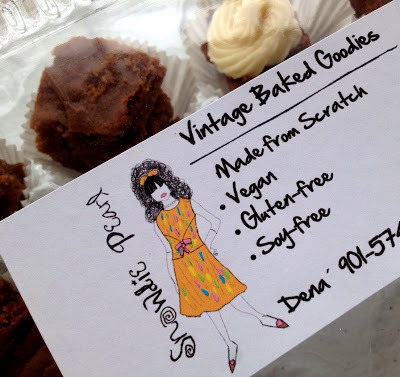 Vintage Baked Goodies
Made from Scratch
• Vegan
• Gluten-free
• Soy-free
Dena' 901-574
Snowdie Pearl